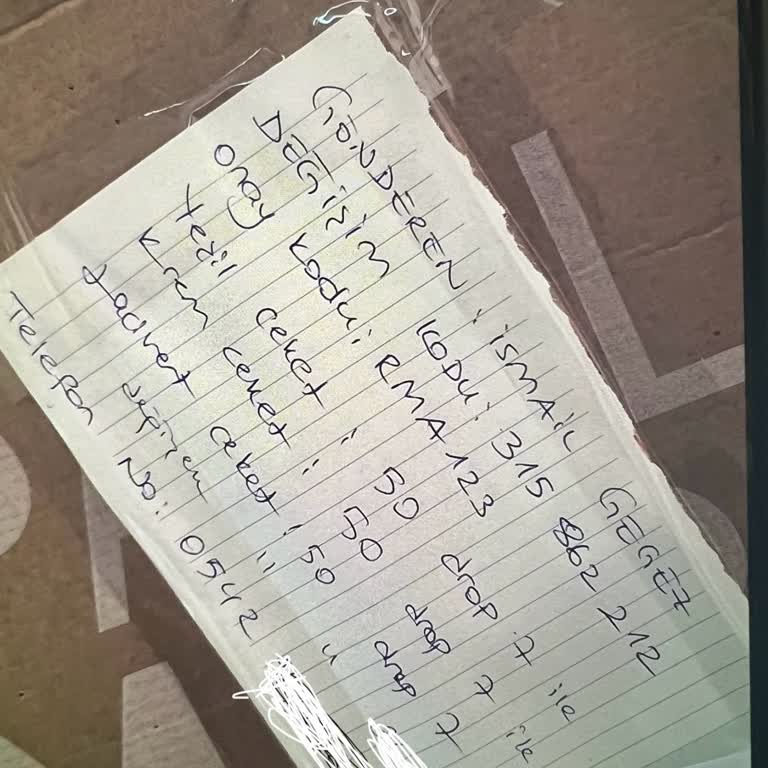 GÖNDEREN : İSMAİL GEGEZ
DEĞİŞİM KODU : 315 862 212
onay kodu : RMA 123
Yeşil ceket : 50 drop 7 ile
Krem ceket : 50 drop 7 ile
Lacivert ceket : 50 drop 7
değişim
Telefon No : 0542